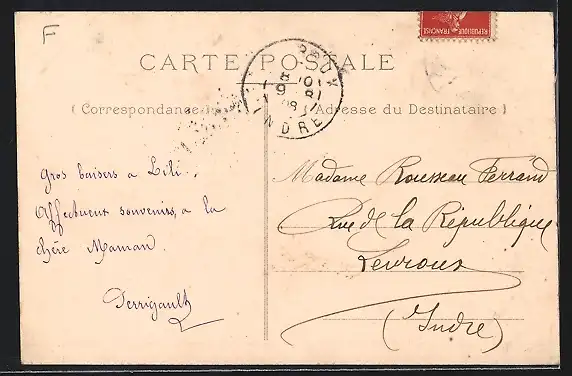 F
REPUBLIQUE FRANÇAISE
CARTE POSTALE
( Correspondance
Adresse du Destinataire )
INDRE
Gros baisers a Lili.
Affectueux souvenirs, a la
chère Maman.
Perrigault
Madame Rousseau Ferrand
Rue de la République
Levroux
(Indre)